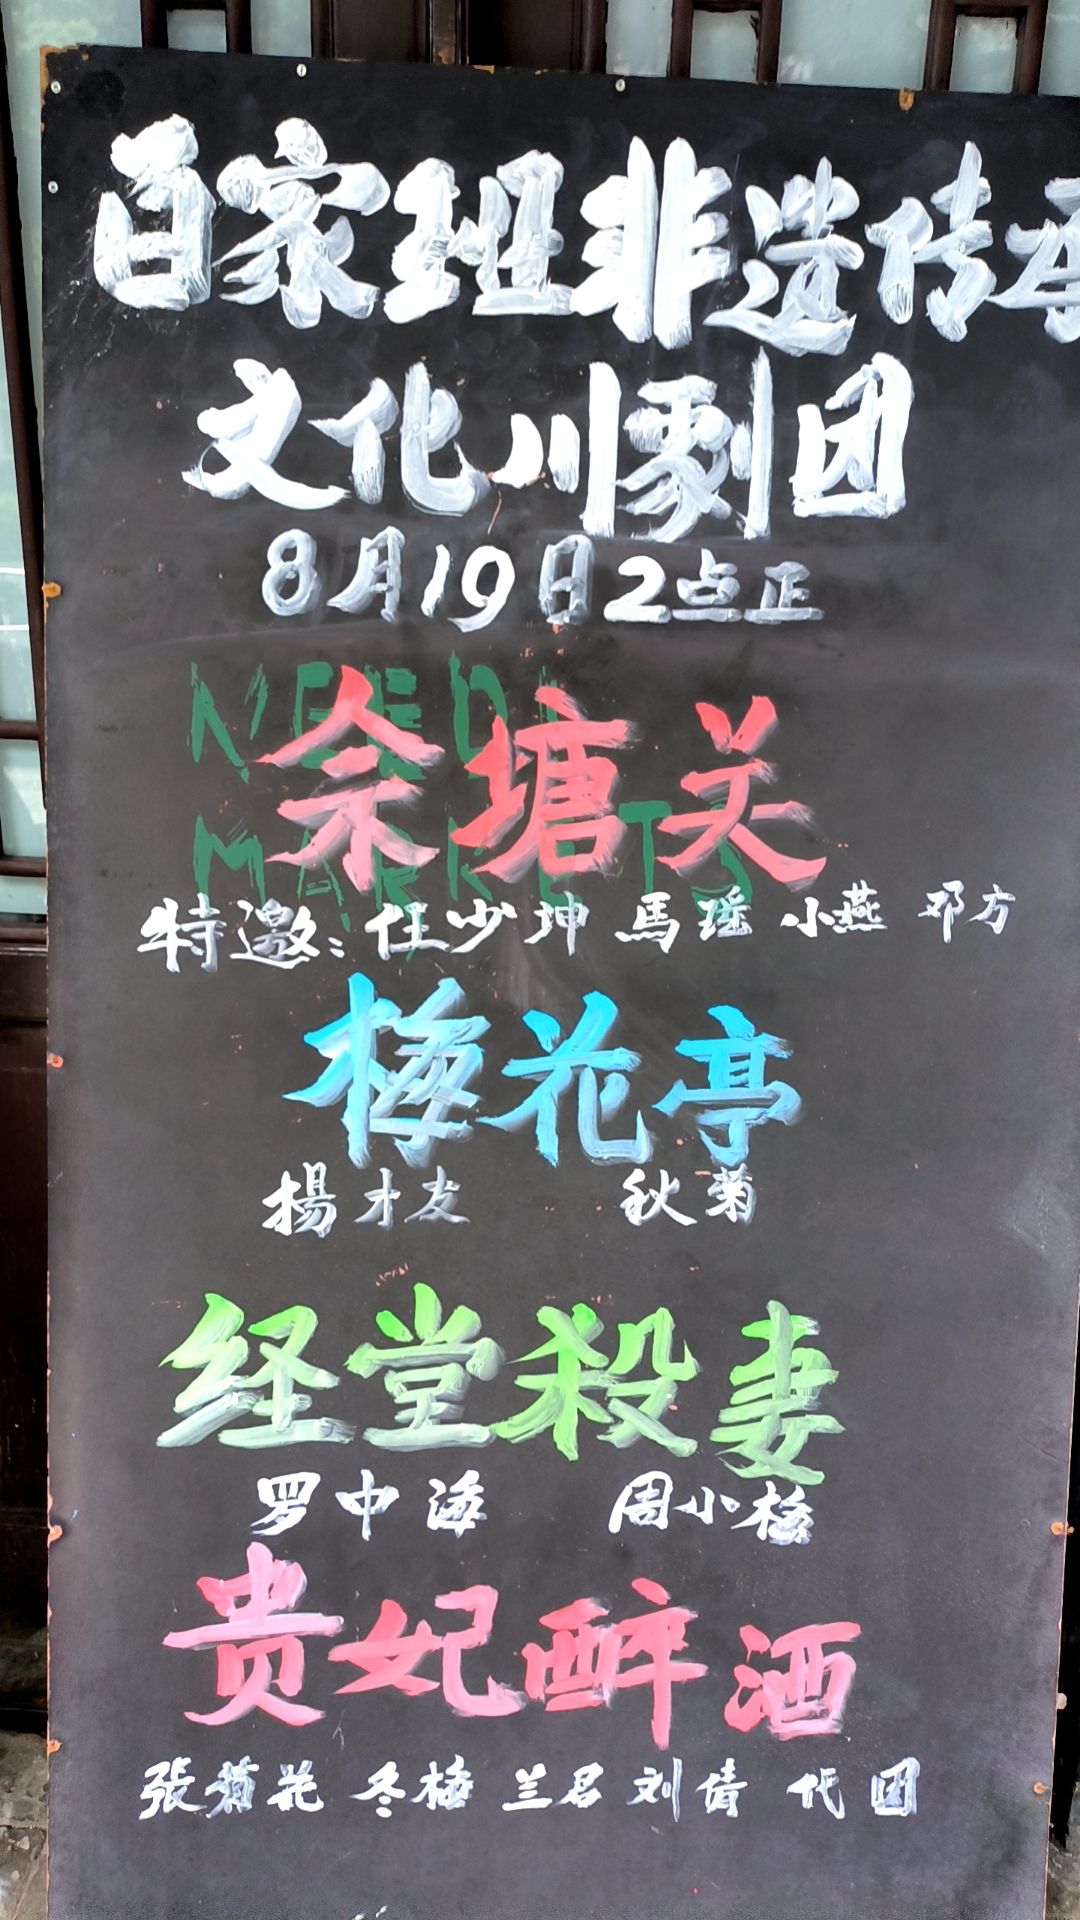 百家班非遗传承
文化川剧团
8月19日2点正
NEEDL
MARKETS
佘塘关
特邀：任少坤 馬瑶 小燕 邓方
梅花亭
楊才友 秋菊
经堂殺妻
罗中海 周小梅
贵妃醉酒
張菊花 冬梅 兰君 刘倩 代团